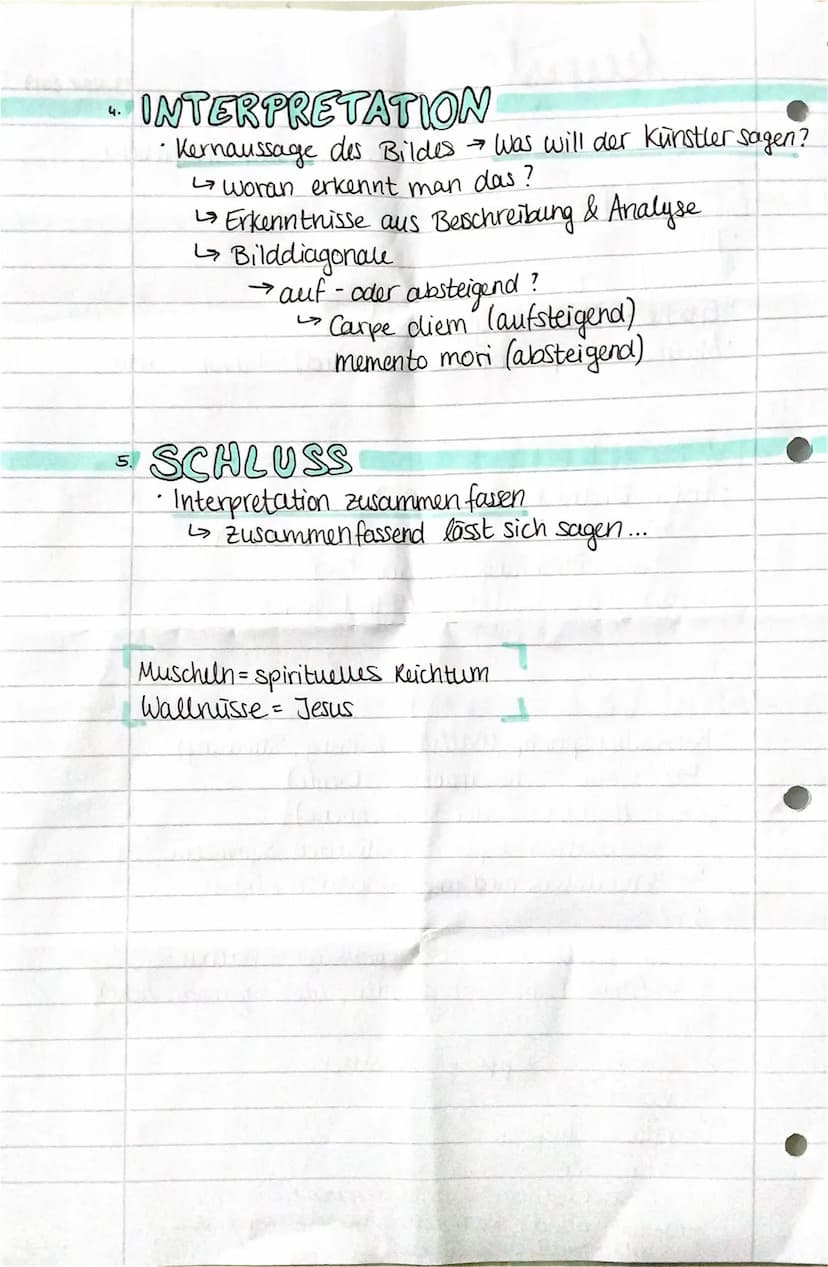 4. INTERPRETATION
· Kernaussage des Bildes → Was will der Künstler sagen?
↳ woran erkennt man das?
↳ Erkenntnisse aus Beschreibung & Analyse
↳ Bilddiagonale
→ auf- oder absteigend?
↳ Carpe diem (aufsteigend)
memento mori (absteigend)
5. SCHLUSS
· Interpretation zusammenfasen
↳ zusammenfassend lässt sich sagen...
Muscheln = spirituelles Reichtum
Wallnüsse = Jesus